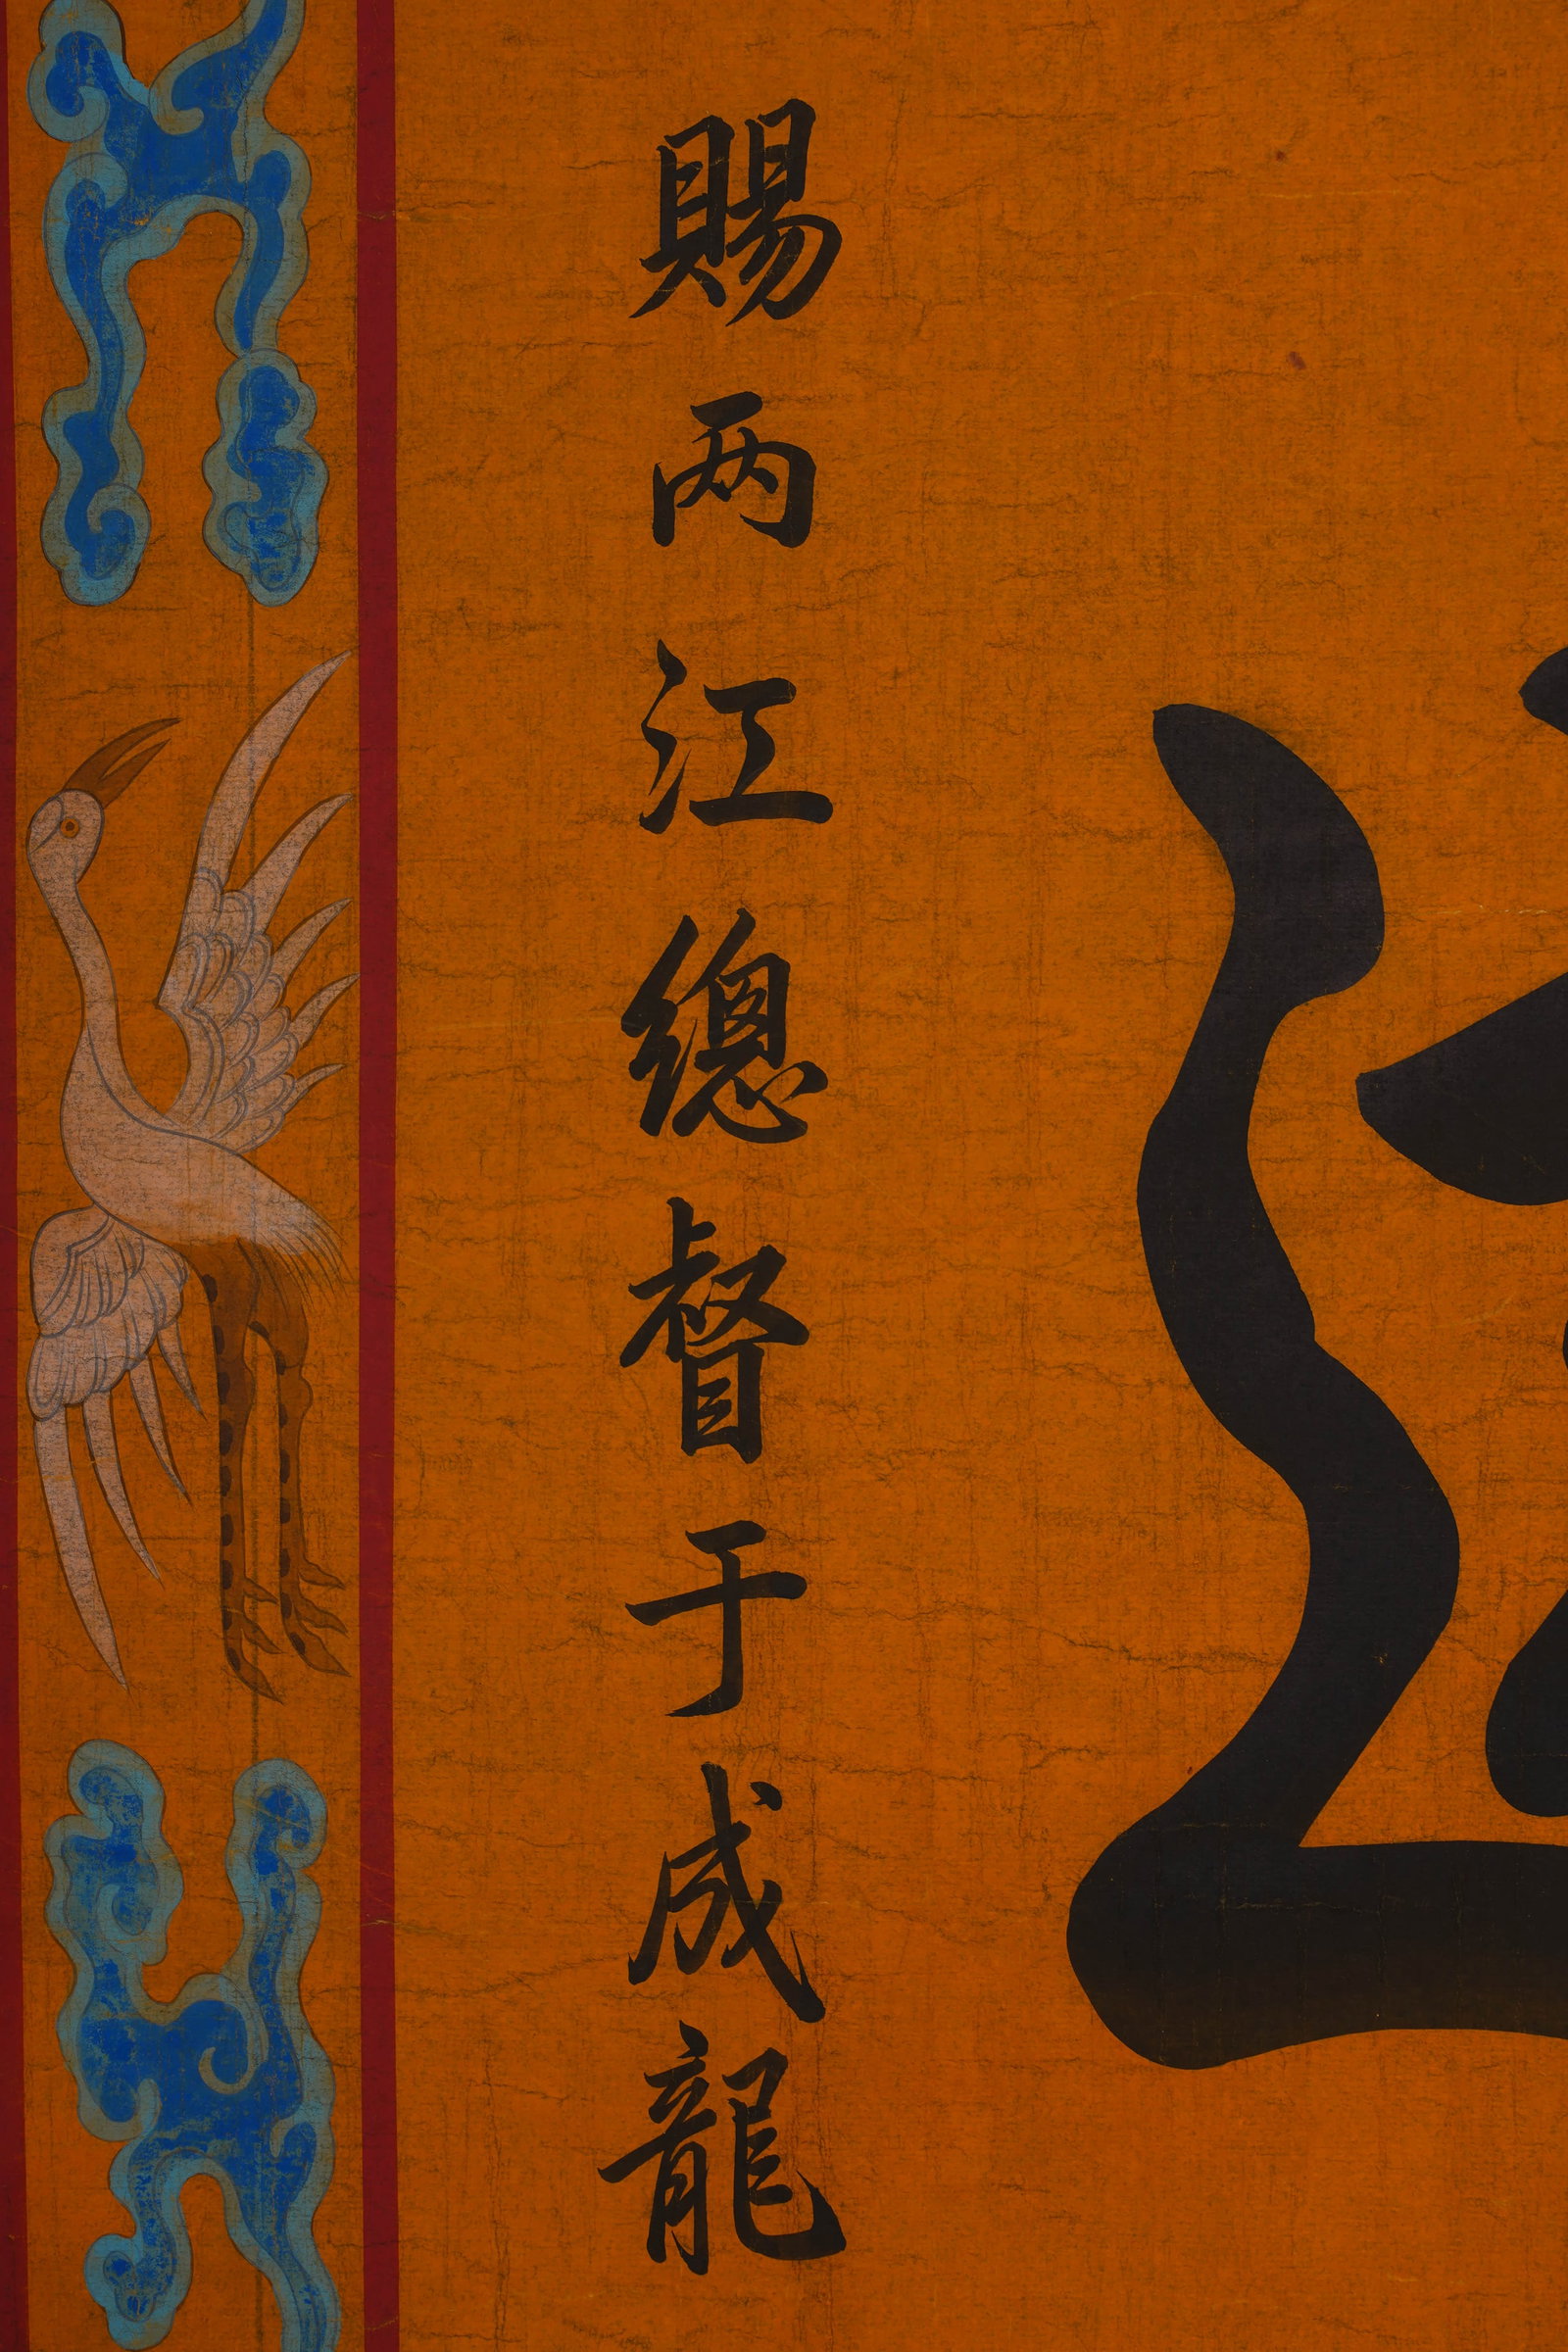 賜两江總督于成龍